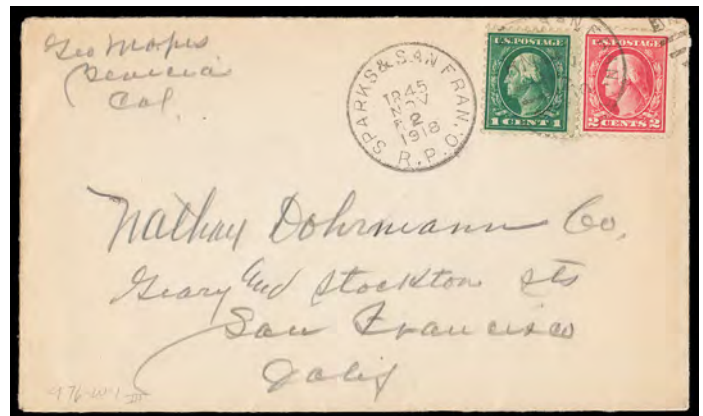 Geo Mapes
Benicia
Cal.
SPARKS & SAN FRAN.
TR 45
NOV
2
1918
R.P.O.
U.S. POSTAGE
1 CENT 1
U.S. POSTAGE
2 CENTS 2
Nathan Dohrmann Co.
Geary and Stockton sts
San Francisco
Calif
476-W-1 III